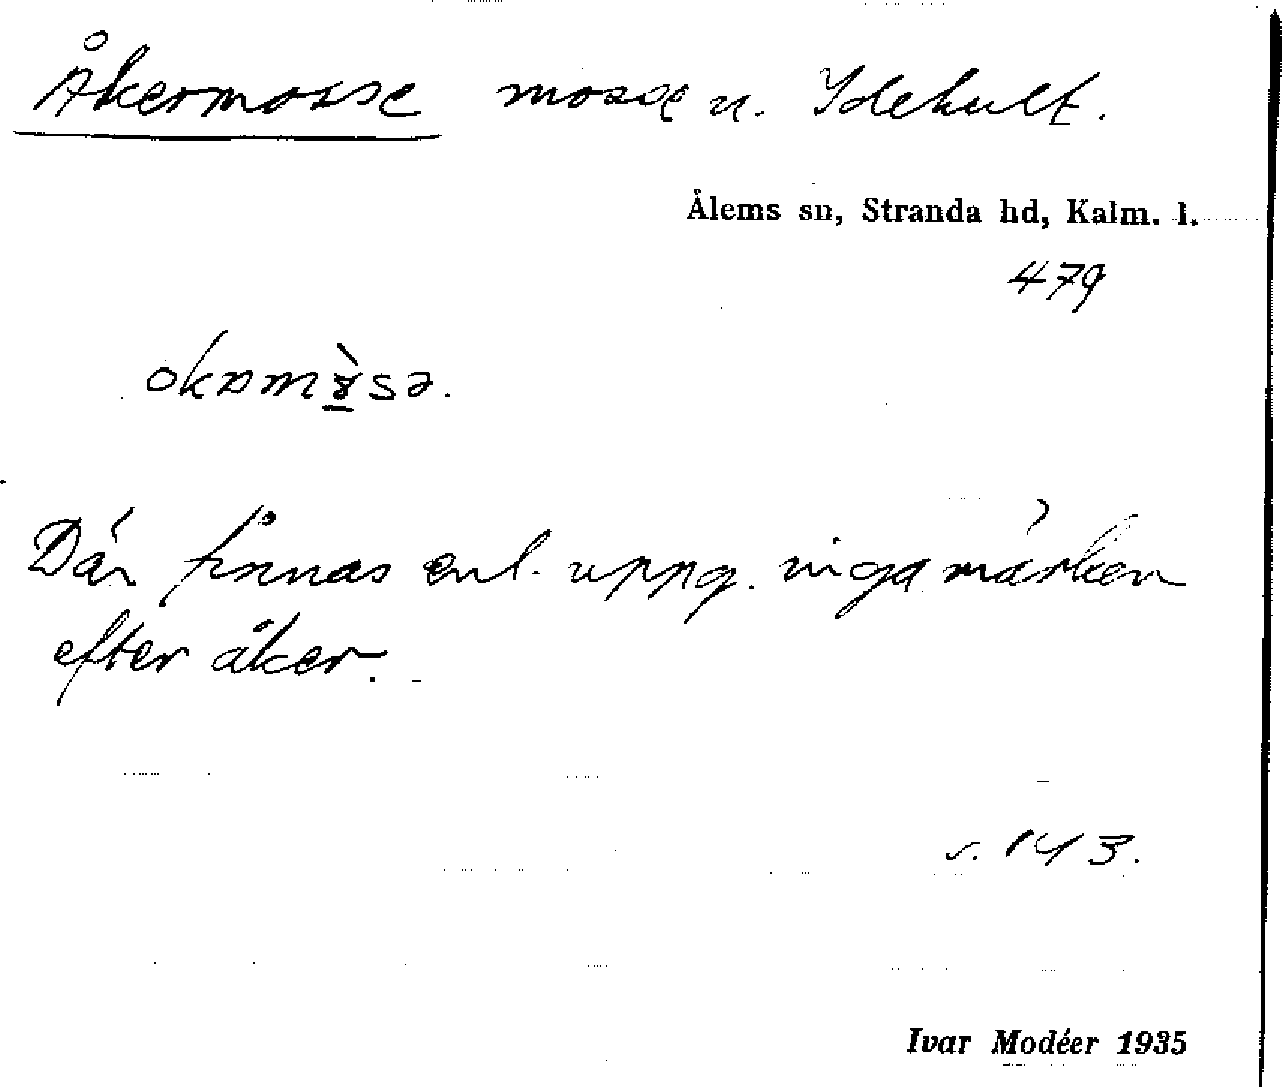 Åkermosse mosse u. Idehult.
Ålems sn, Stranda hd, Kalm. l.
479
Där finnas enl. uppg. inga märken
efter åker.
s. 143.
Ivar Modéer 1935